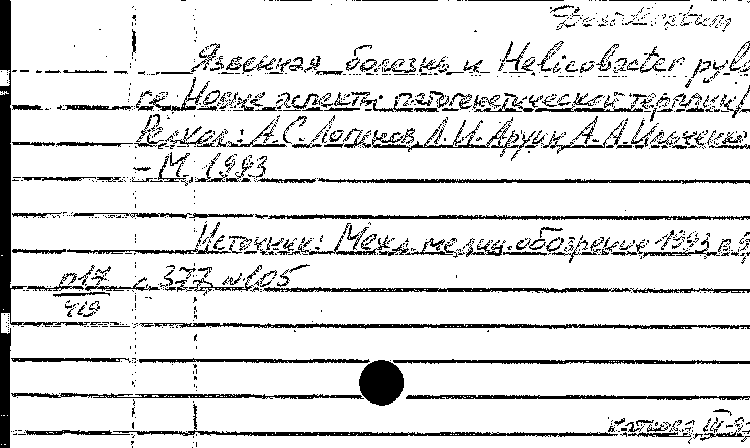 Desideratum
Язвенная болезнь и Helicobacter pylo
ri. Новые аспекты патогенетической терапии/
Редкол.: А.С. Логинов, Л.И. Аруин, А.А. Ильченко
– М, 1993
Источник: Межд. медиц. обозрение, 1993, в.
п17 с. 377, №105
419
III-9